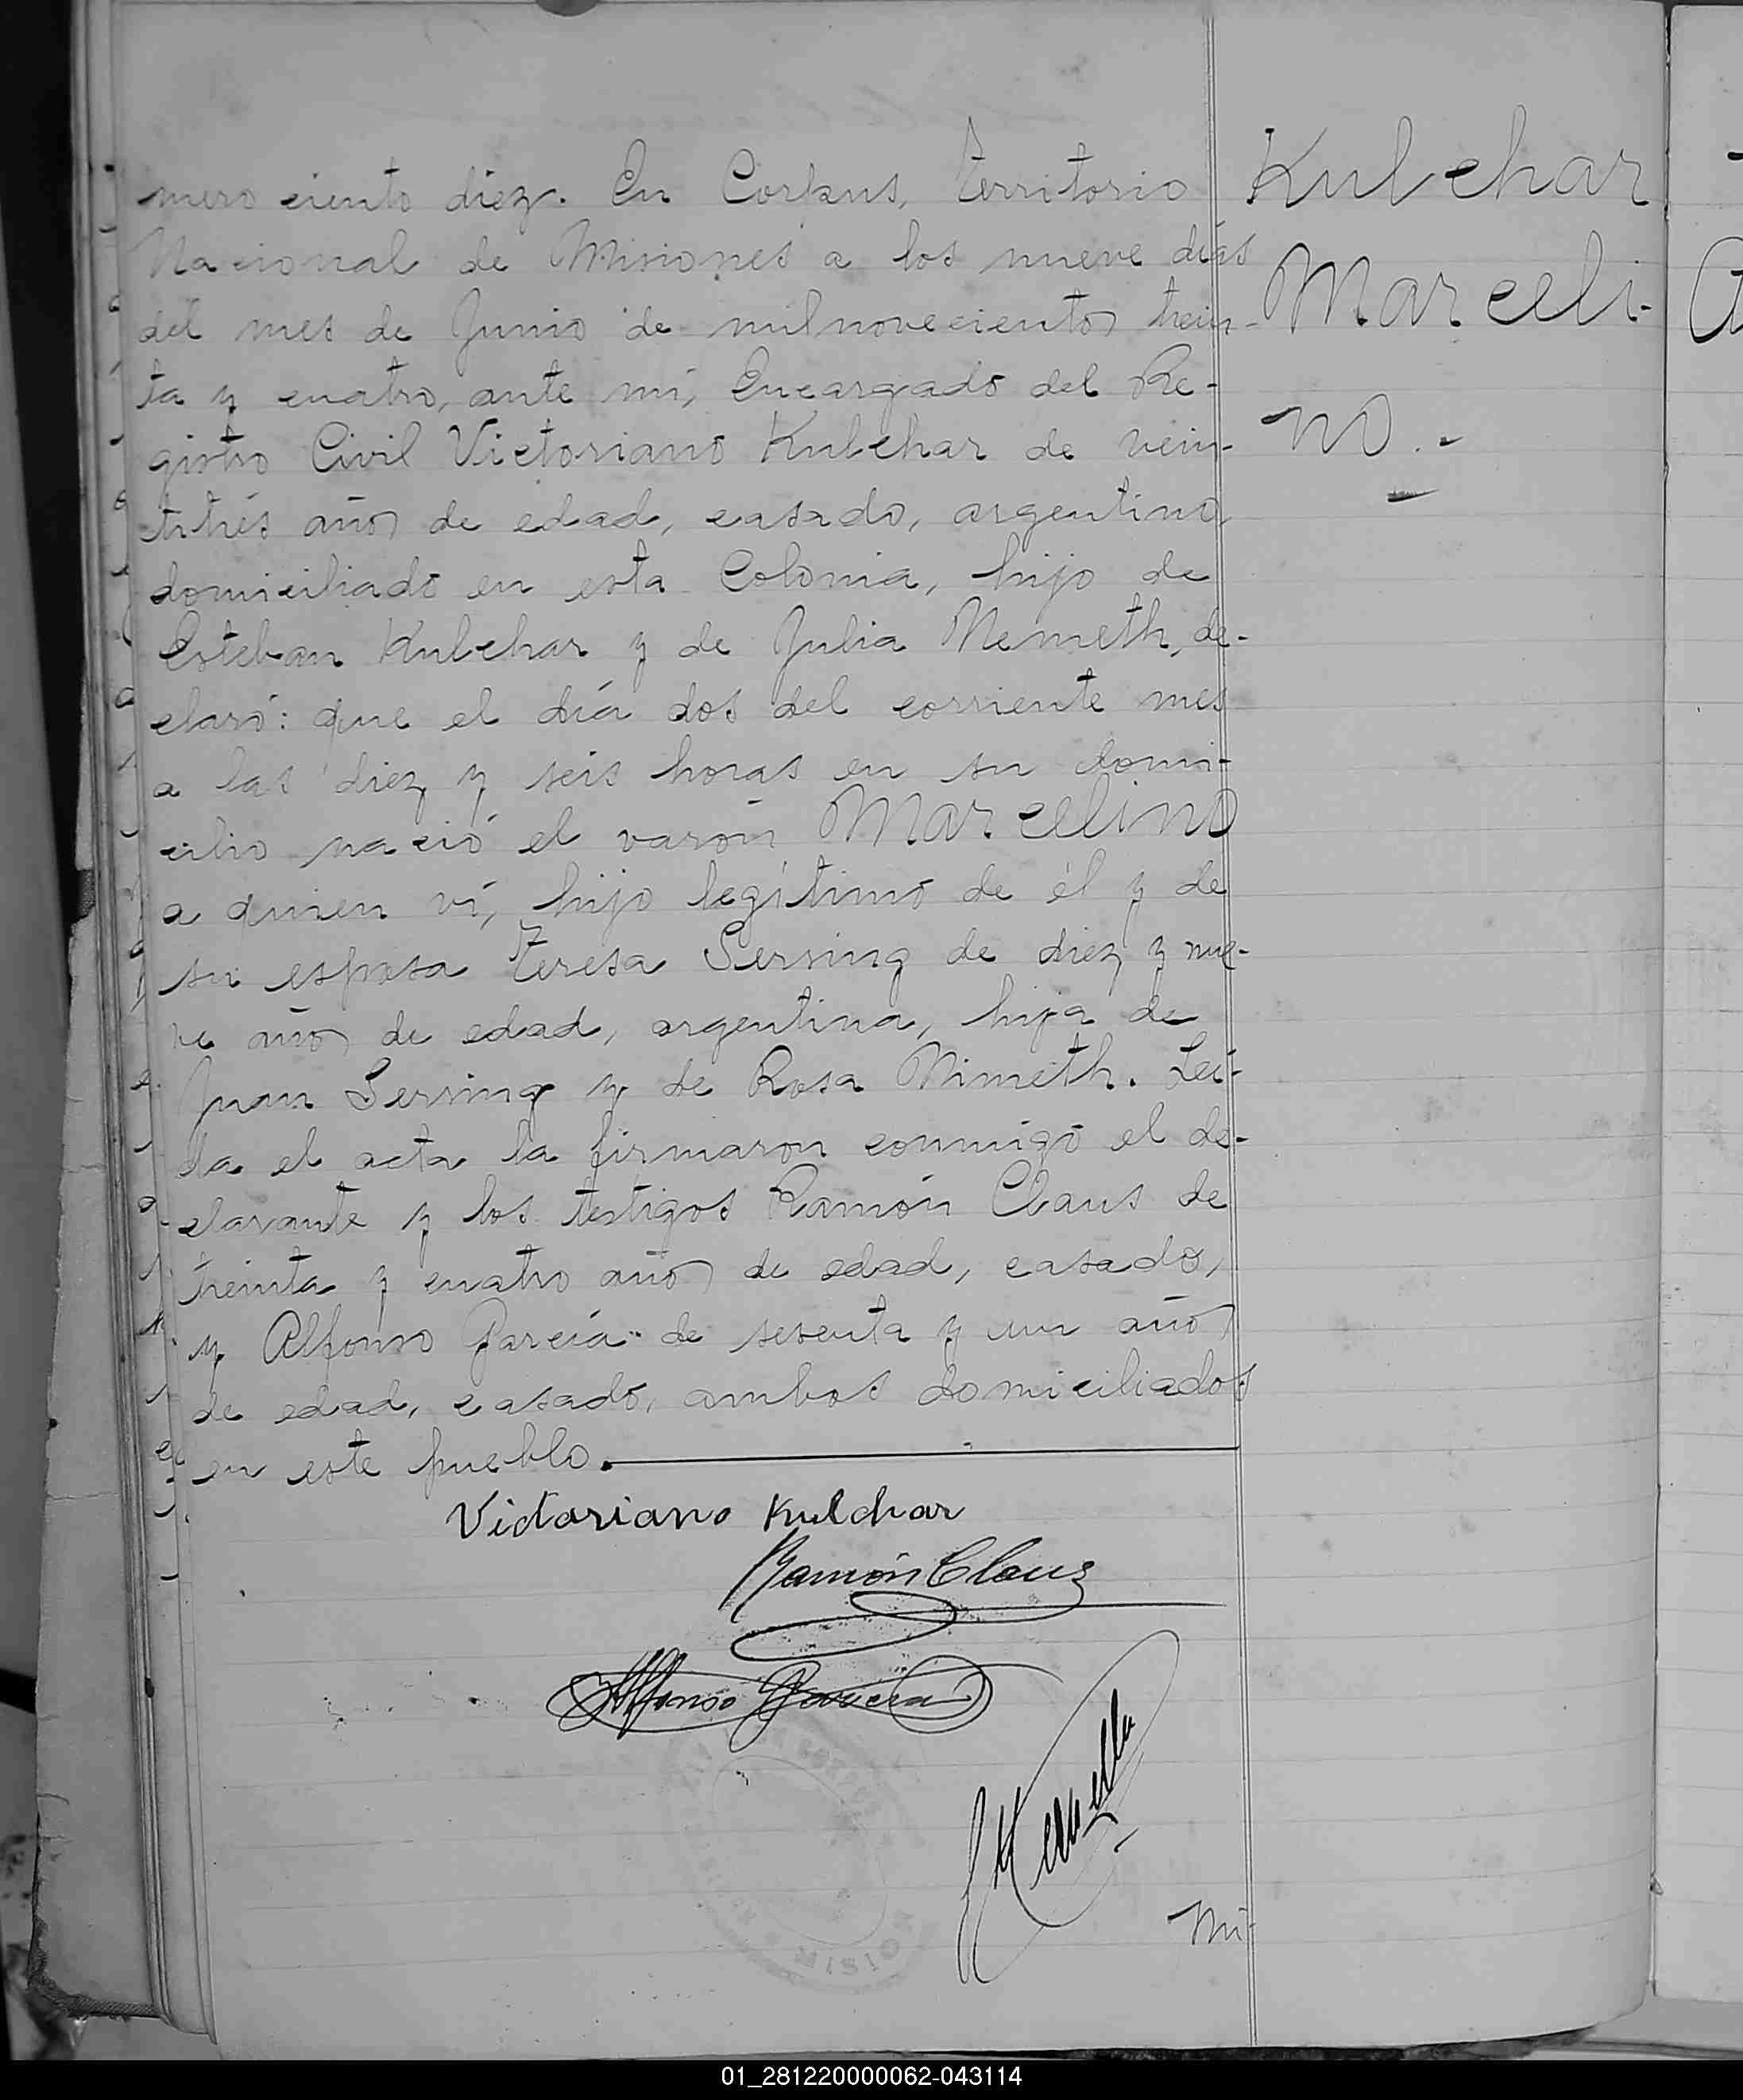 mero ciento diez. En Corpus, Territorio
Nacional de Misiones a los nueve días
del mes de Junio de mil novecientos trein-
ta y cuatro, ante mí, Encargado del Re-
gistro Civil Victoriano Kulchar de vein-
titrés años de edad, casado, argentino,
domiciliado en esta Colonia, hijo de
Esteban Kulchar y de Julia Nemeth, de-
claró: que el día dos del corriente mes
a las diez y seis horas en su domi-
cilio nació el varón Marcelino
a quien ví, hijo legítimo de él y de
su esposa Teresa Sersing de diez y nue-
ve años de edad, argentina, hija de
Juan Sersing y de Rosa Nimeth. Leí-
da el acta la firmaron conmigo el de-
clarante y los testigos Ramón Claus de
treinta y cuatro años de edad, casado,
y Alfonso García de sesenta y un años
de edad, casado, ambos domiciliados
en este pueblo.
Victoriano Kulchar
Ramón Claus
Alfonso Garcia
Nú-
Kulchar
Marceli-
no.-
01_281220000062-043114